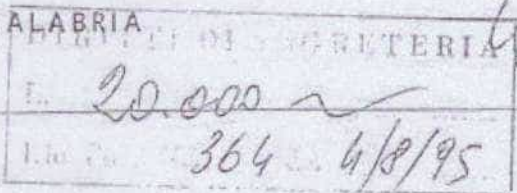 ALABRIA
DIRITTI DI SEGRETERIA
L. 20.000
364 4/8/95